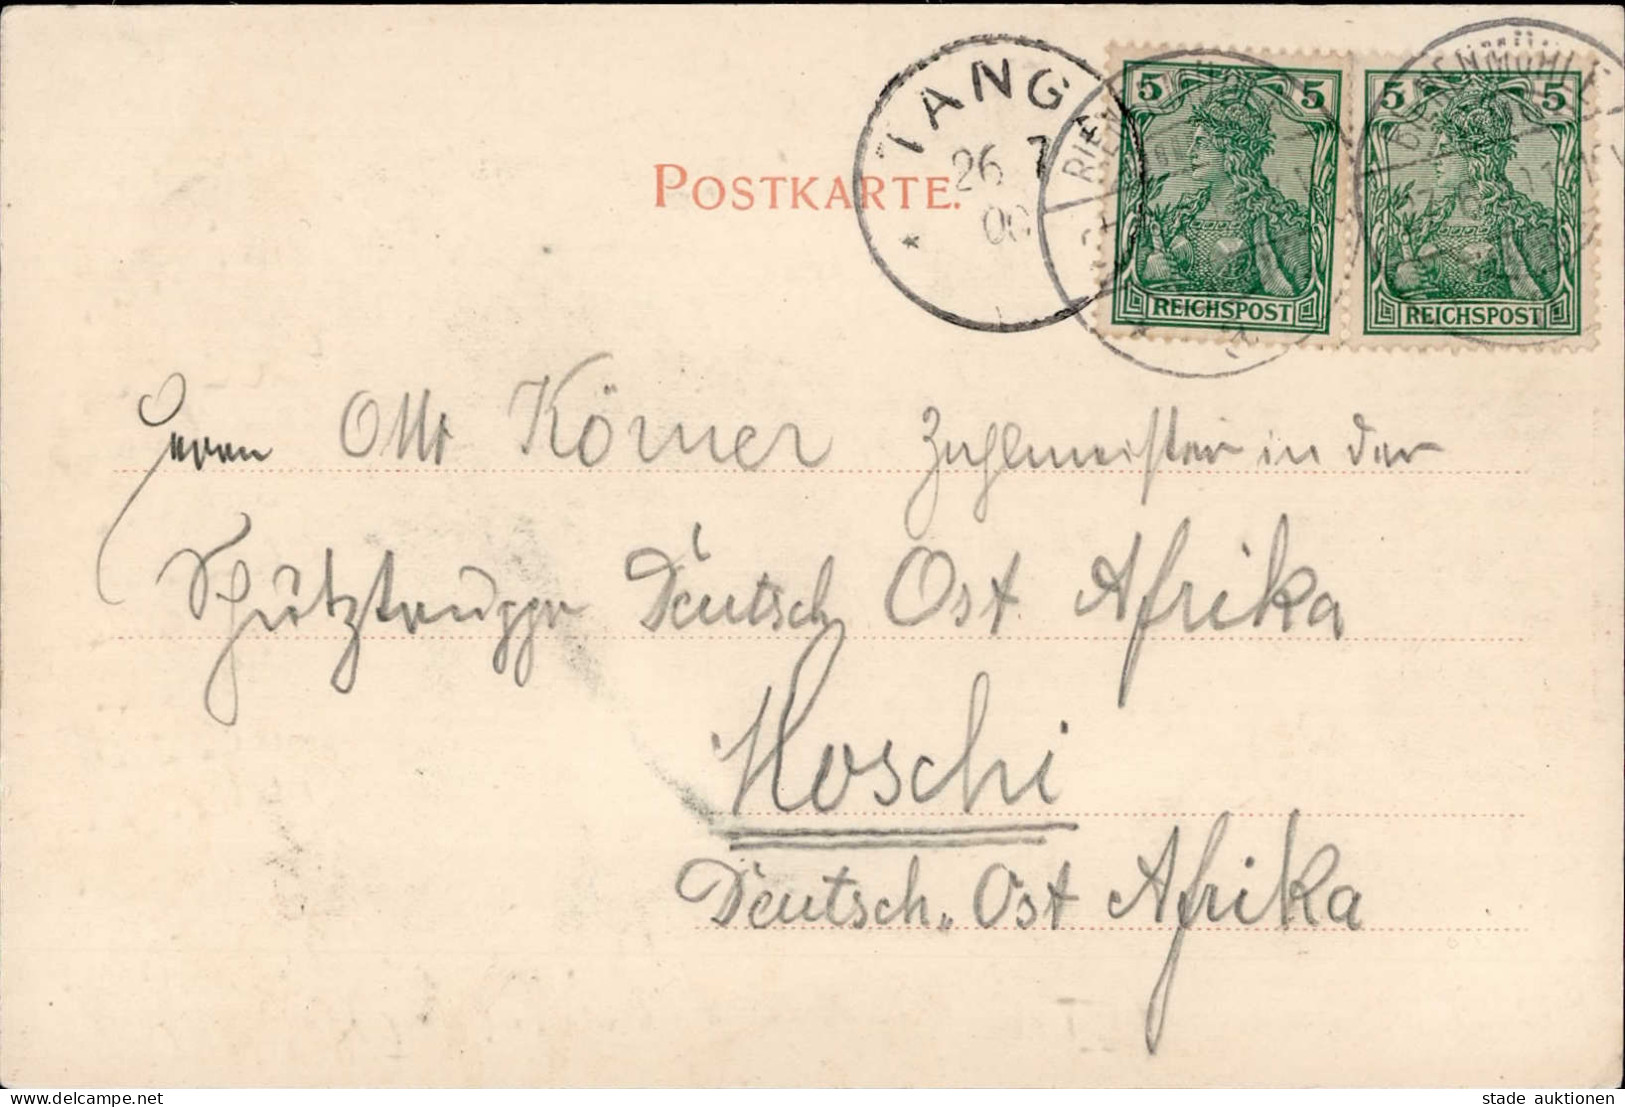 TANGA
26 7
00
5 5
REICHSPOST
5 5
REICHSPOST
POSTKARTE.
Herrn Otto Körner Zahlmeister in der
Schutztruppe Deutsch Ost Afrika
Moschi
Deutsch. Ost Afrika
www.delcampe.net
stade auktionen